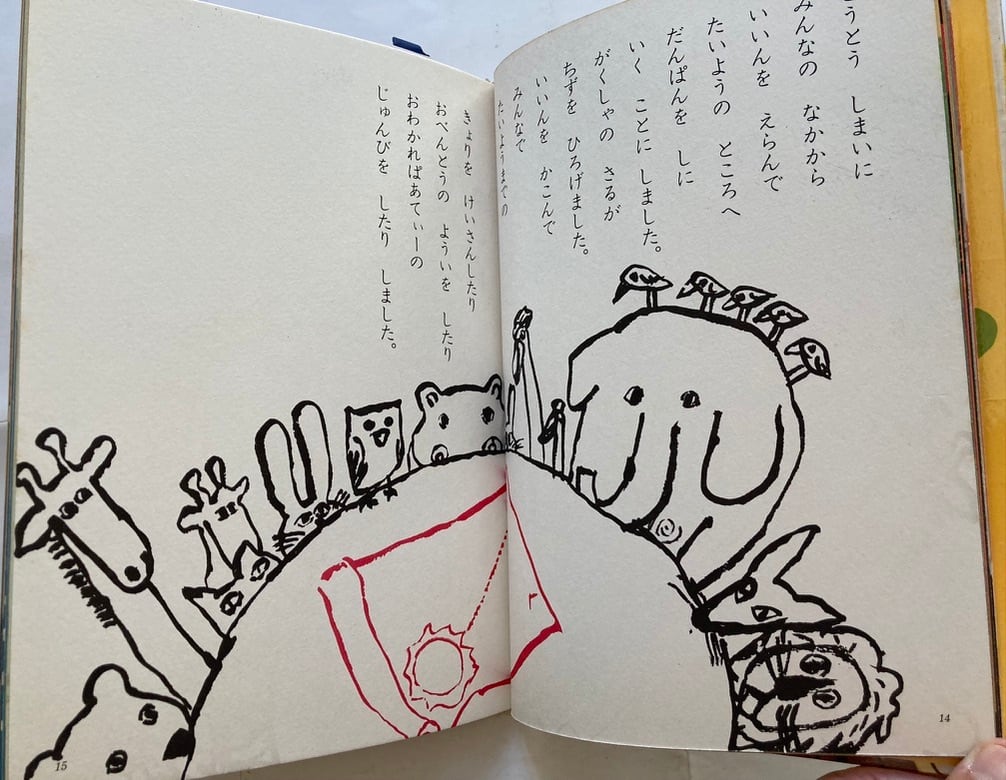 うとう しまいに
みんなの なかから
いいんを えらんで
たいようの ところへ
だんぱんを しに
いく ことに しました。
がくしゃの さるが
ちずを ひろげました。
いいんを かこんで
みんなで
たいようまでの
きょりを けいさんしたり
おべんとうの よういを したり
おわかればあてぃーの
じゅんびを したり しました。
14
15